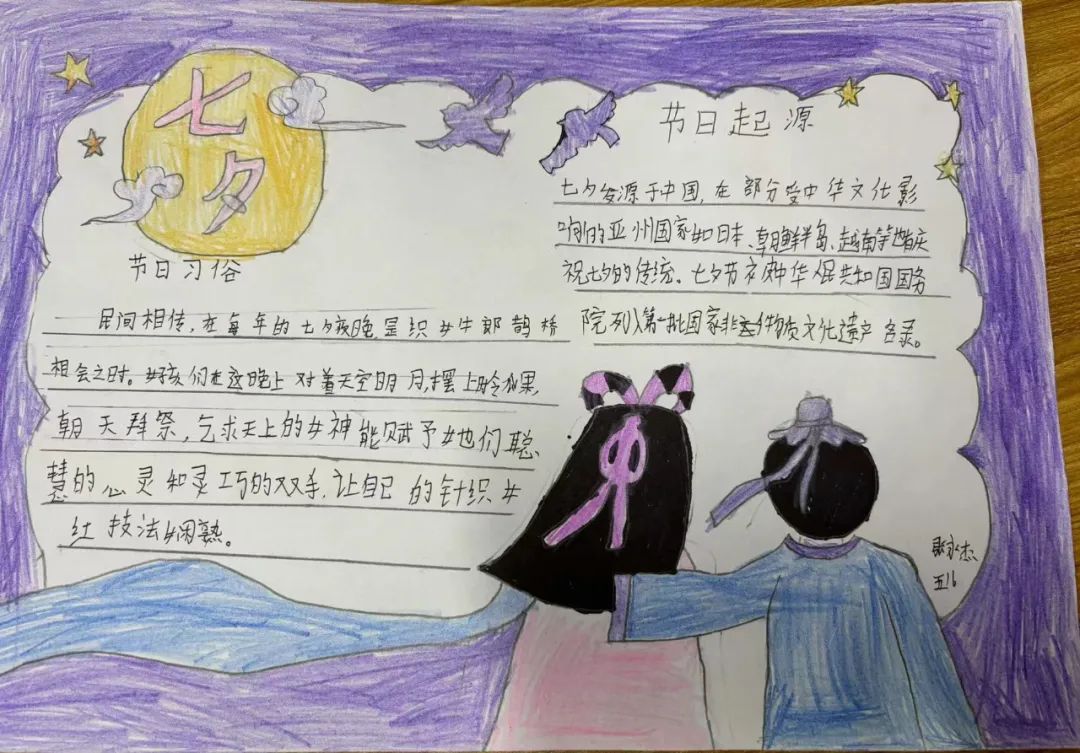 七夕
节日习俗
民间相传，在每年的七夕夜晚，是织女牛郎鹊桥
相会之时。女孩们在这晚上对着天空明月，摆上时令瓜果，
朝天拜祭，乞求天上的女神能赋予她们聪
慧的心灵和灵巧的双手，让自己的针织女
红技法娴熟。
节日起源
七夕发源于中国，在部分受中华文化影
响的亚州国家如日本、朝鲜半岛、越南等也有庆
祝七夕的传统。七夕节被中华人民共和国国务
院列入第一批国家非物质文化遗产名录。
张永杰
五16